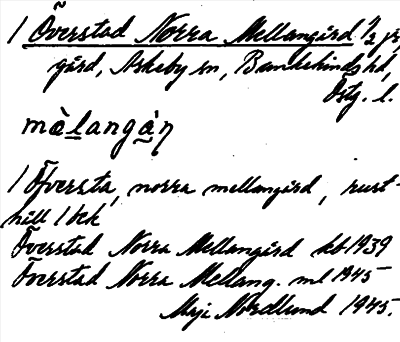 1 Överstad Norra Mellangård 1/2 jr,
gård, Askeby sn, Bankekinds hd,
Östg. l.
mὰlangὰŋ
1 Öfversta, norra mellangård, rust-
håll 1 bek
Överstad Norra Mellangård kb 1939
Överstad Norra Mellang. ml 1945
Maji Nordlund 1945.